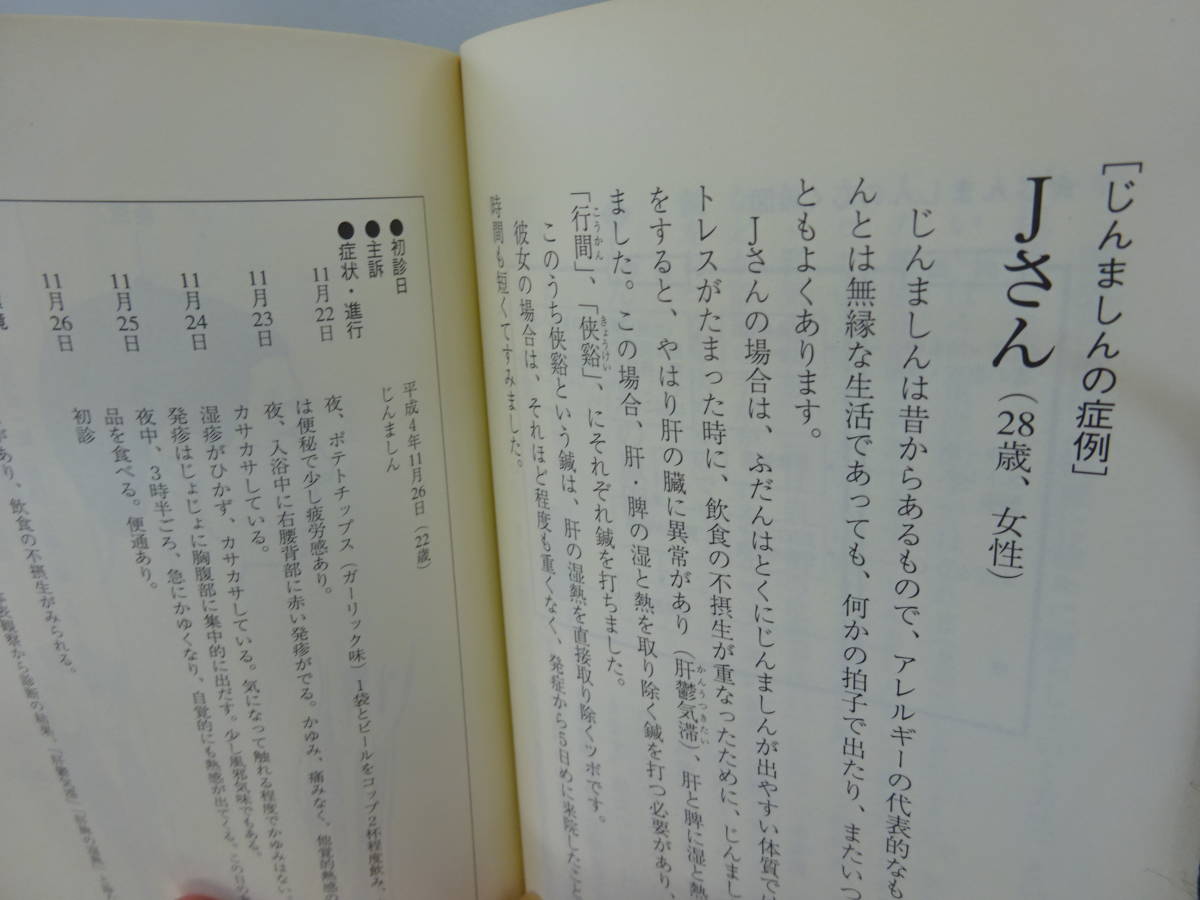 [じんましんの症例]
Jさん（28歳、女性）
じんましんは昔からあるもので、アレルギーの代表的なも
んとは無縁な生活であっても、何かの拍子で出たり、またいつ
ともよくあります。
Jさんの場合は、ふだんはとくにじんましんが出やすい体質では
トレスがたまった時に、飲食の不摂生が重なったために、じんまし
をすると、やはり肝の臓に異常があり（肝鬱気滞）、肝と脾に湿と熱
ました。この場合、肝・脾の湿と熱を取り除く鍼を打つ必要があり、
「行間」、「侠谿」、にそれぞれ鍼を打ちました。
このうち侠谿という鍼は、肝の湿熱を直接取り除くツボです。
彼女の場合は、それほど程度も重くなく、発症から5日めに来院したこと
時間も短くてすみました。
●初診日 平成4年11月26日（22歳）
●主訴 じんましん
●症状・進行
11月22日 夜、ポテトチップス（ガーリック味）1袋とビールをコップ2杯程度飲み、
は便秘で少し疲労感あり。
11月23日 夜、入浴中に右腰背部に赤い発疹がでる。かゆみ、痛みなく、他覚的熱感の
カサカサしている。
11月24日 湿疹がひかず、カサカサしている。気になって触れる程度でかゆみはない。
発疹はじょじょに胸腹部に集中的に出だす。少し風邪気味でもある。
11月25日 夜中、3時半ごろ、急にかゆくなり、自覚的にも熱感が出てくる。この
品を食べる。便通あり。
11月26日 初診
があり、飲食の不摂生がみられる。